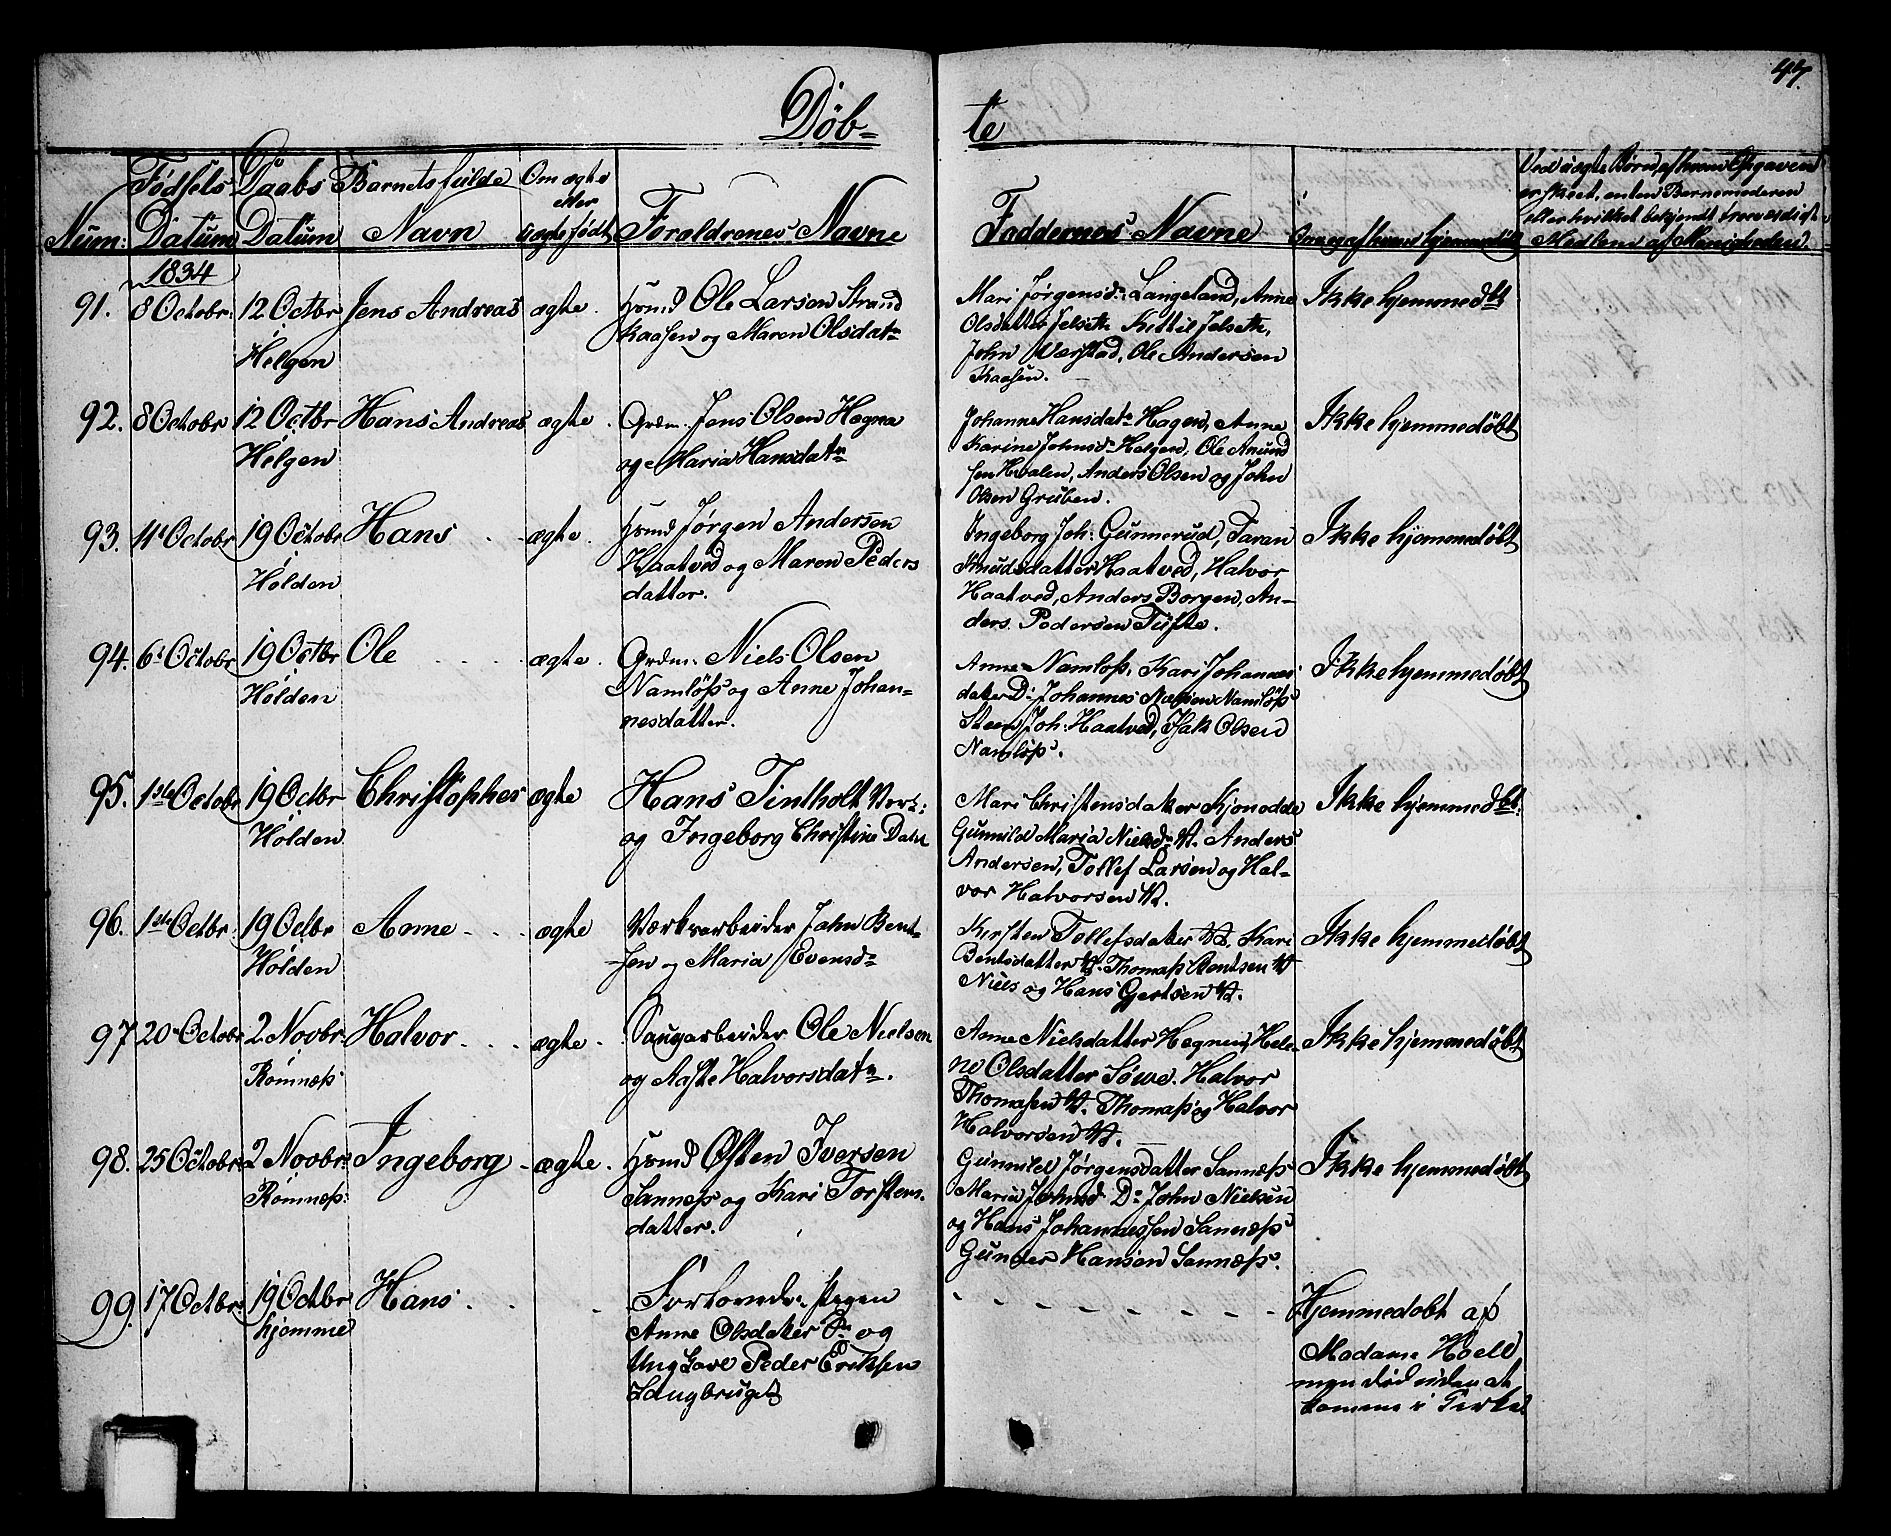 47.
Döb=
te
Num:
Fødsels Datum
Daabs Datum
Barnets fulde Navn
Om ægte eller uægte født
Foraldrenes Navne
Faddernes Navne
Om og af hvem hjemmedöbt
Ved uægte Börn, af hvem Opgaven
er skeet, enten Barnemoderen
eller hvilket bekjendt troeværdigt
Medlem af Menigheden.
1834
91. 8 Octobr. 12 Octbr Jens Andreas ægte. Hsmd Ole Larsen Strand
Helgen
Kaasen og Maren Olsdatr
Mari Jörgensd: Langeland, Anne
Olsdatter Jelseth Kittil Jelseth,
John Værstad, Ole Andersen
Kaasen.
Ikke hjemmedbt
92. 8 Octobr 12 Octbr Hans Andreas ægte. Grdm. Jens Olsen Hegna
Helgen
og Maria Hansdatr
Johanne Hansdatr Hagen, Anne
Karine Johnsdr Helgen, Ole Amund
sen Hvalen, Anders Olsen og John
Olsen Gruben.
Ikke hjemmedöbt
93. 11 Octobr 19 Octobr Hans ægte. Hsmd Jørgen Andersen
Holden
Haatved og Maren Peders
datter.
Ingeborg Joh: Gunnerud, Taran
Knudsdatter Haatved, Halvor
Haatved, Anders Borgen, An-
ders Pedersen Tufte.
Ikke hjemmedöbt
94. 6 Octobr 19 Octbr Ole ægte. Grdm. Niels Olsen
Holden
Namlöss og Anne Johan-
nesdatter.
Anne Namloss, Kari Johannes
datter Do Johannes Namlöss
Steen Joh: Haatved, Isak Olsen
Namlöss.
Ikke hjemmedöbt
95. 1ste Octobr 19 Octbr Christopher ægte Hans Tintholt Verk:
Holden
og Ingeborg Christine Datr
Mari Christensdatter Kjonodde
Gunnild Maria Nielsdr V. Anders
Andersen, Tollef Larsen og Hal-
vor Halvorsen V.
Ikke hjemmedbt.
96. 1ste Octbr. 19 Octbr Anne ægte Værkarbeider John Bent-
Holden
sen og Maria Evensdr
Kirsten Tollefsdatter V. Kari
Bentsdatter V. Thomass Bentsen V
Niels og Hans Gertsen V.
Ikke hjemmedöbt
97 20 Octobr 2 Novbr. Halvor ægte. Saugarbeider Ole Nielsen
Römnæs
og Aaste Halvorsdatr.
Anne Nielsdatter Hegnen, Hele-
ne Olsdatter Söwe. Halvor
Thomasen V. Thomass og Halvor
Halvorsen V.
Ikke hjemmedöbt
98. 25 Octobr. 2 Novbr. Ingeborg ægte. Hsmd Østen Iversen
Römnæs.
Sannæss og Kari Torstens
datter.
Gunnild Jörgensdatter Sannæss
Maria Johnsd Do John Nielsen
og Hans Johannessen Sannæss
Gunder Hansen Sannæss.
Ikke hjemmedöbt
99. 17 Octbr. 19 Octbr Hans
hjemme
Anne Olsdatter og
Ung Karl Peder Eriksen
Saugbruget
Hjemmedöbt af
Madame Hoell
men död inden at
komme i Kirke.